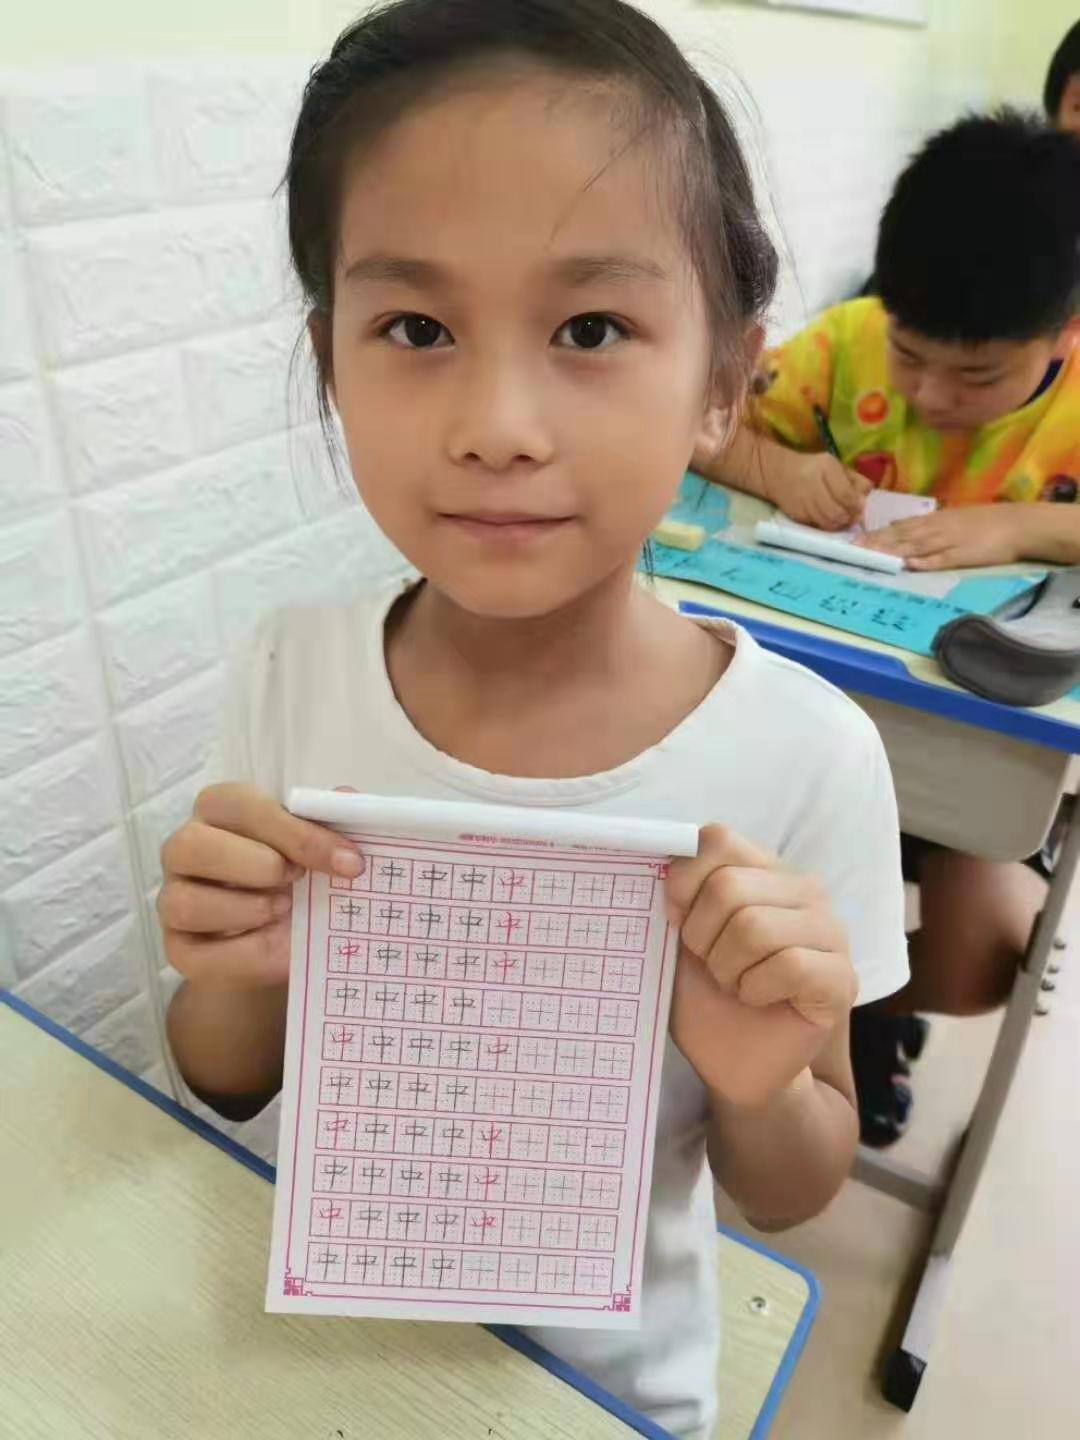 中中中中
中中中中中
中中中中中
中中中中
中中中中中
中中中中
中中中中中
中中中中中
中中中中中
中中中中